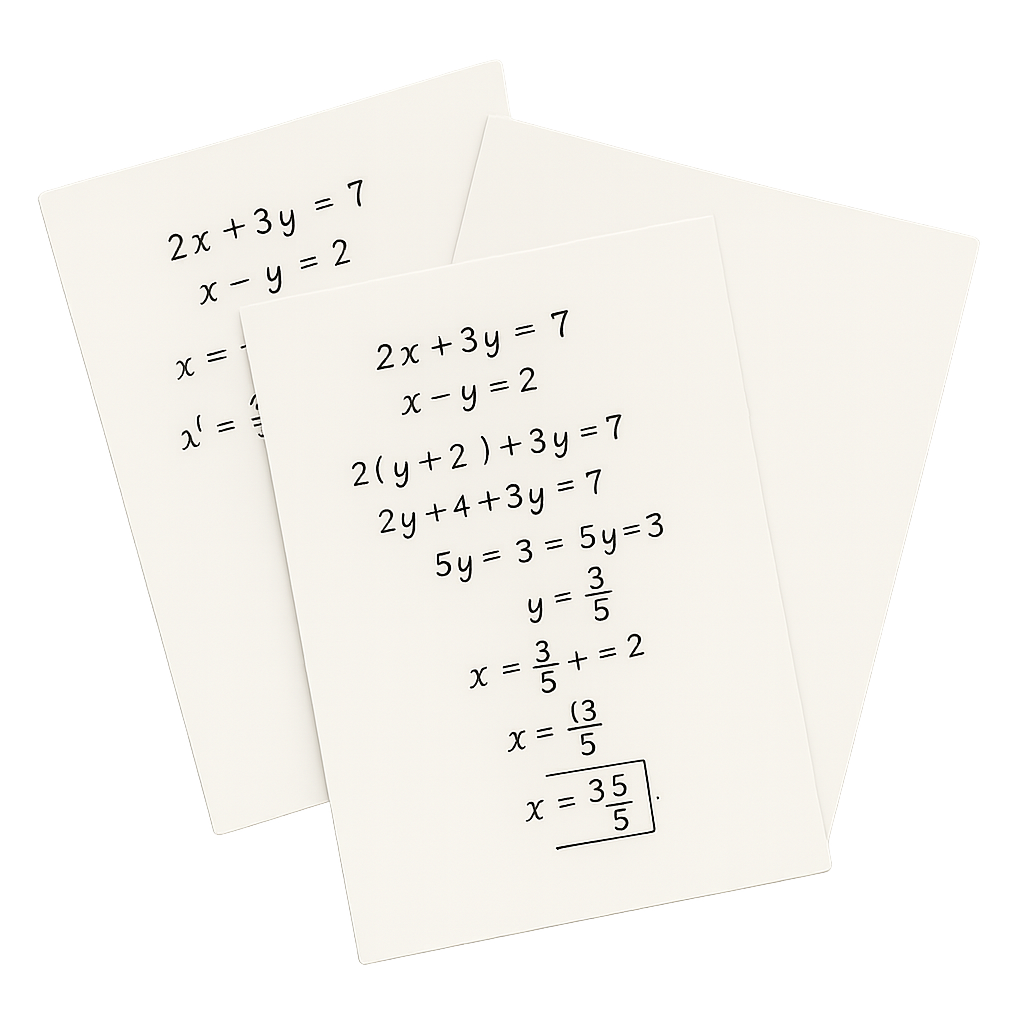 2x + 3y = 7
x − y = 2
x =
x' =
2x + 3y = 7
x − y = 2
2(y + 2 ) + 3y = 7
2y + 4 + 3y = 7
5y = 3 = 5y = 3
y = 3/5
x = 3/5 + = 2
x = (3/5
x = 3 5/5 .